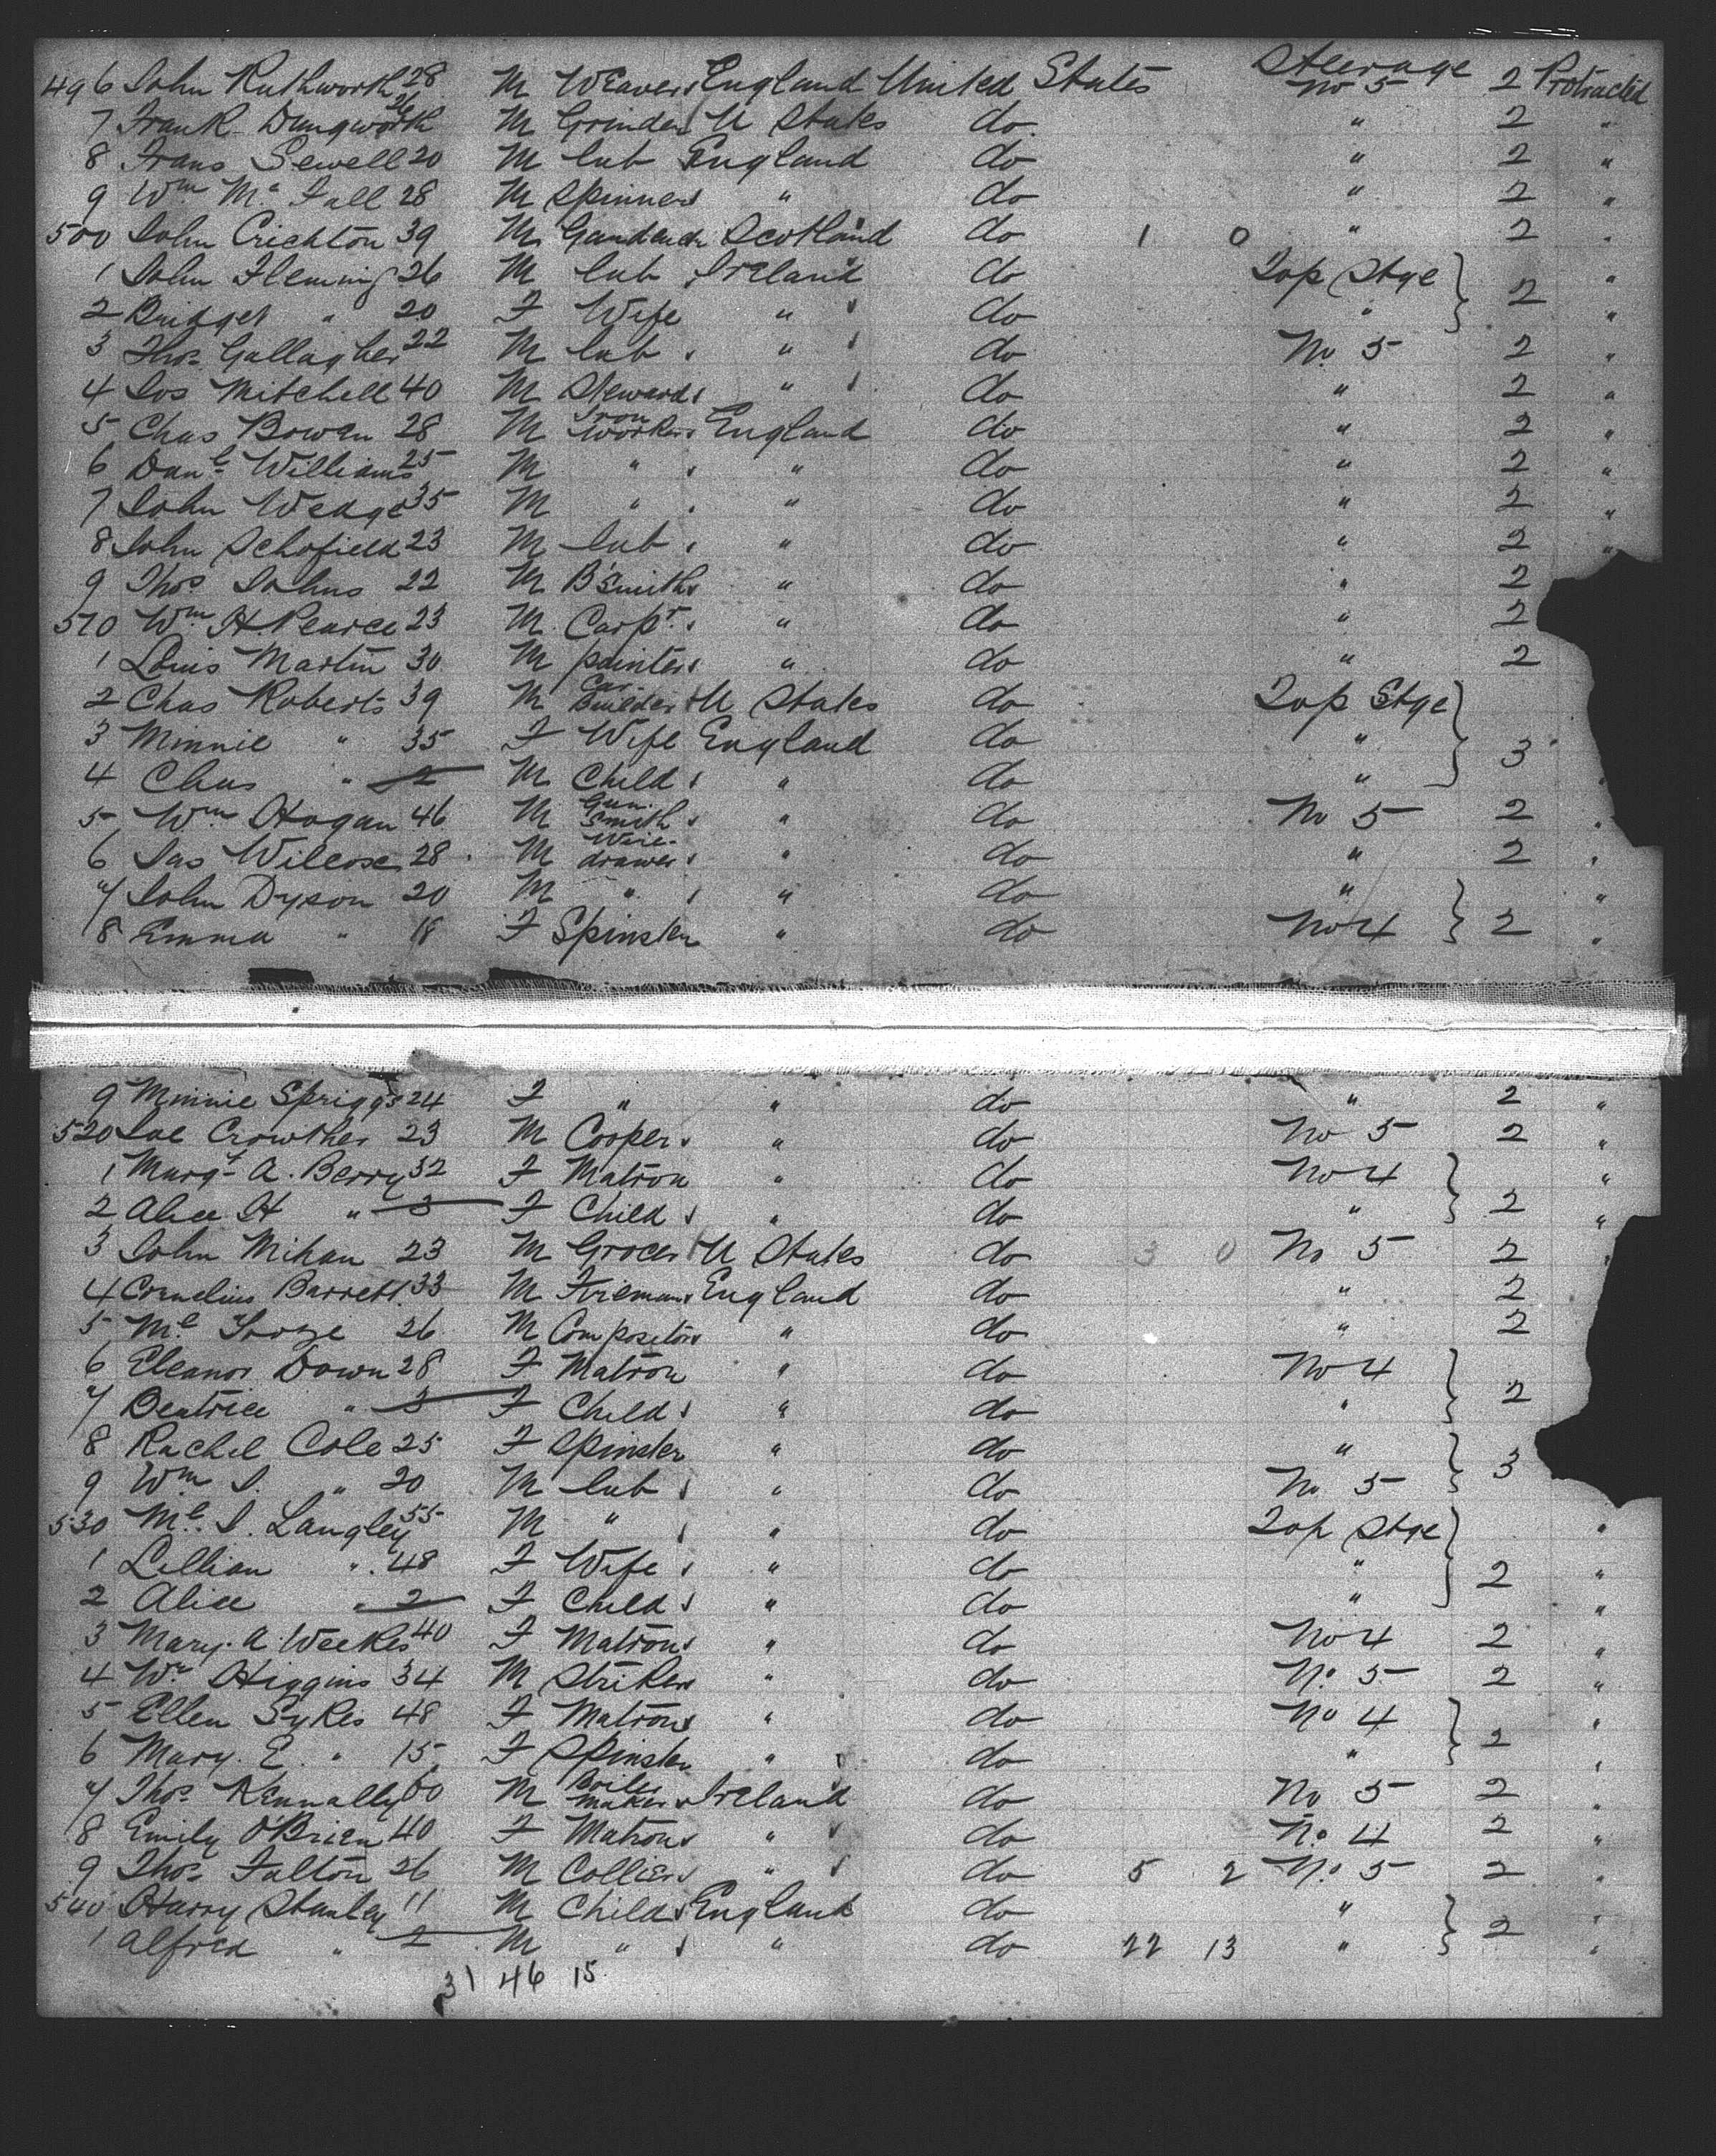 496 John Ruthworth 28 M Weaver England United States Steerage No 5 2 Protracted
7 Frank Dungworth 26 M Grinder U States do " 2 "
8 Frans Sewell 20 M lab England do " 2 "
9 Wm Mc Fall 28 M Spinner " do " 2 "
500 John Crichton 39 M Scotland do 1 0 " 2 "
1 John Fleming 26 M lab Ireland do Top Stge
2 Bridget " 20 F Wife " do " 2 "
3 Thos Gallagher 22 M lab " do No 5 2 "
4 Jos Mitchell 40 M Steward " do " 2 "
5 Chas Bowen 28 M Iron Worker England do " 2 "
6 Danl Williams 25 M " " do " 2 "
7 John Wedge 35 M " " do " 2 "
8 John Schofield 23 M lab " do " 2 "
9 Thos Johns 22 M B'Smith " do " 2
510 Wm H. Pearce 23 M Carpt " do " 2
1 Louis Martin 30 M painter " do " 2
2 Chas Roberts 39 M Car Builder U States do Top Stge
3 Minnie " 35 F Wife England do " 3
4 Chas " 2 M Child " do " "
5 Wm Hogan 46 M Gun Smith " do No 5 2 "
6 Jas Wilcox 28 M Wire drawer " do " 2 "
7 John Dyson 20 M " " do " "
8 Emma " 18 F Spinster " do No 4 2 "
9 Minnie Spriggs 24 F " " do " 2 "
520 Joe Crowther 23 M Cooper " do No 5 2 "
1 Margt A. Berry 32 F Matron " do No 4 "
2 Alice H " 3 F Child " do " 2 "
3 John Mihan 23 M Grocer U States do 3 0 No 5 2 "
4 Cornelius Barrett 33 M Fireman England do " 2
5 Ml 26 M Compositor " do " 2
6 Eleanor Down 28 F Matron " do No 4
7 Beatrice " 3 F Child " do " 2
8 Rachel Cole 25 F Spinster " do "
9 Wm J. " 20 M lab " do No 5 3
530 Ml J. Langley 55 M " " do Top Stge "
1 Lillian " 48 F Wife " do " 2 "
2 Alice " 2 F Child " do " "
3 Mary A Weekes 40 F Matron " do No 4 2 "
4 Wm Higgins 34 M Striker " do No 5 2 "
5 Ellen Sykes 48 F Matron " do No 4 "
6 Mary E. " 15 F Spinster " do " 2 "
7 Thos Kennally 60 M Boiler maker Ireland do No 5 2 "
8 Emily O'Brien 40 F Matron " do No 4 2 "
9 Thos Falton 26 M Collier " do 5 2 No 5 2 "
540 Harry Stanley 11 M Child England do " "
1 Alfred " 2 M " " do 22 13 " 2 "
31 46 15